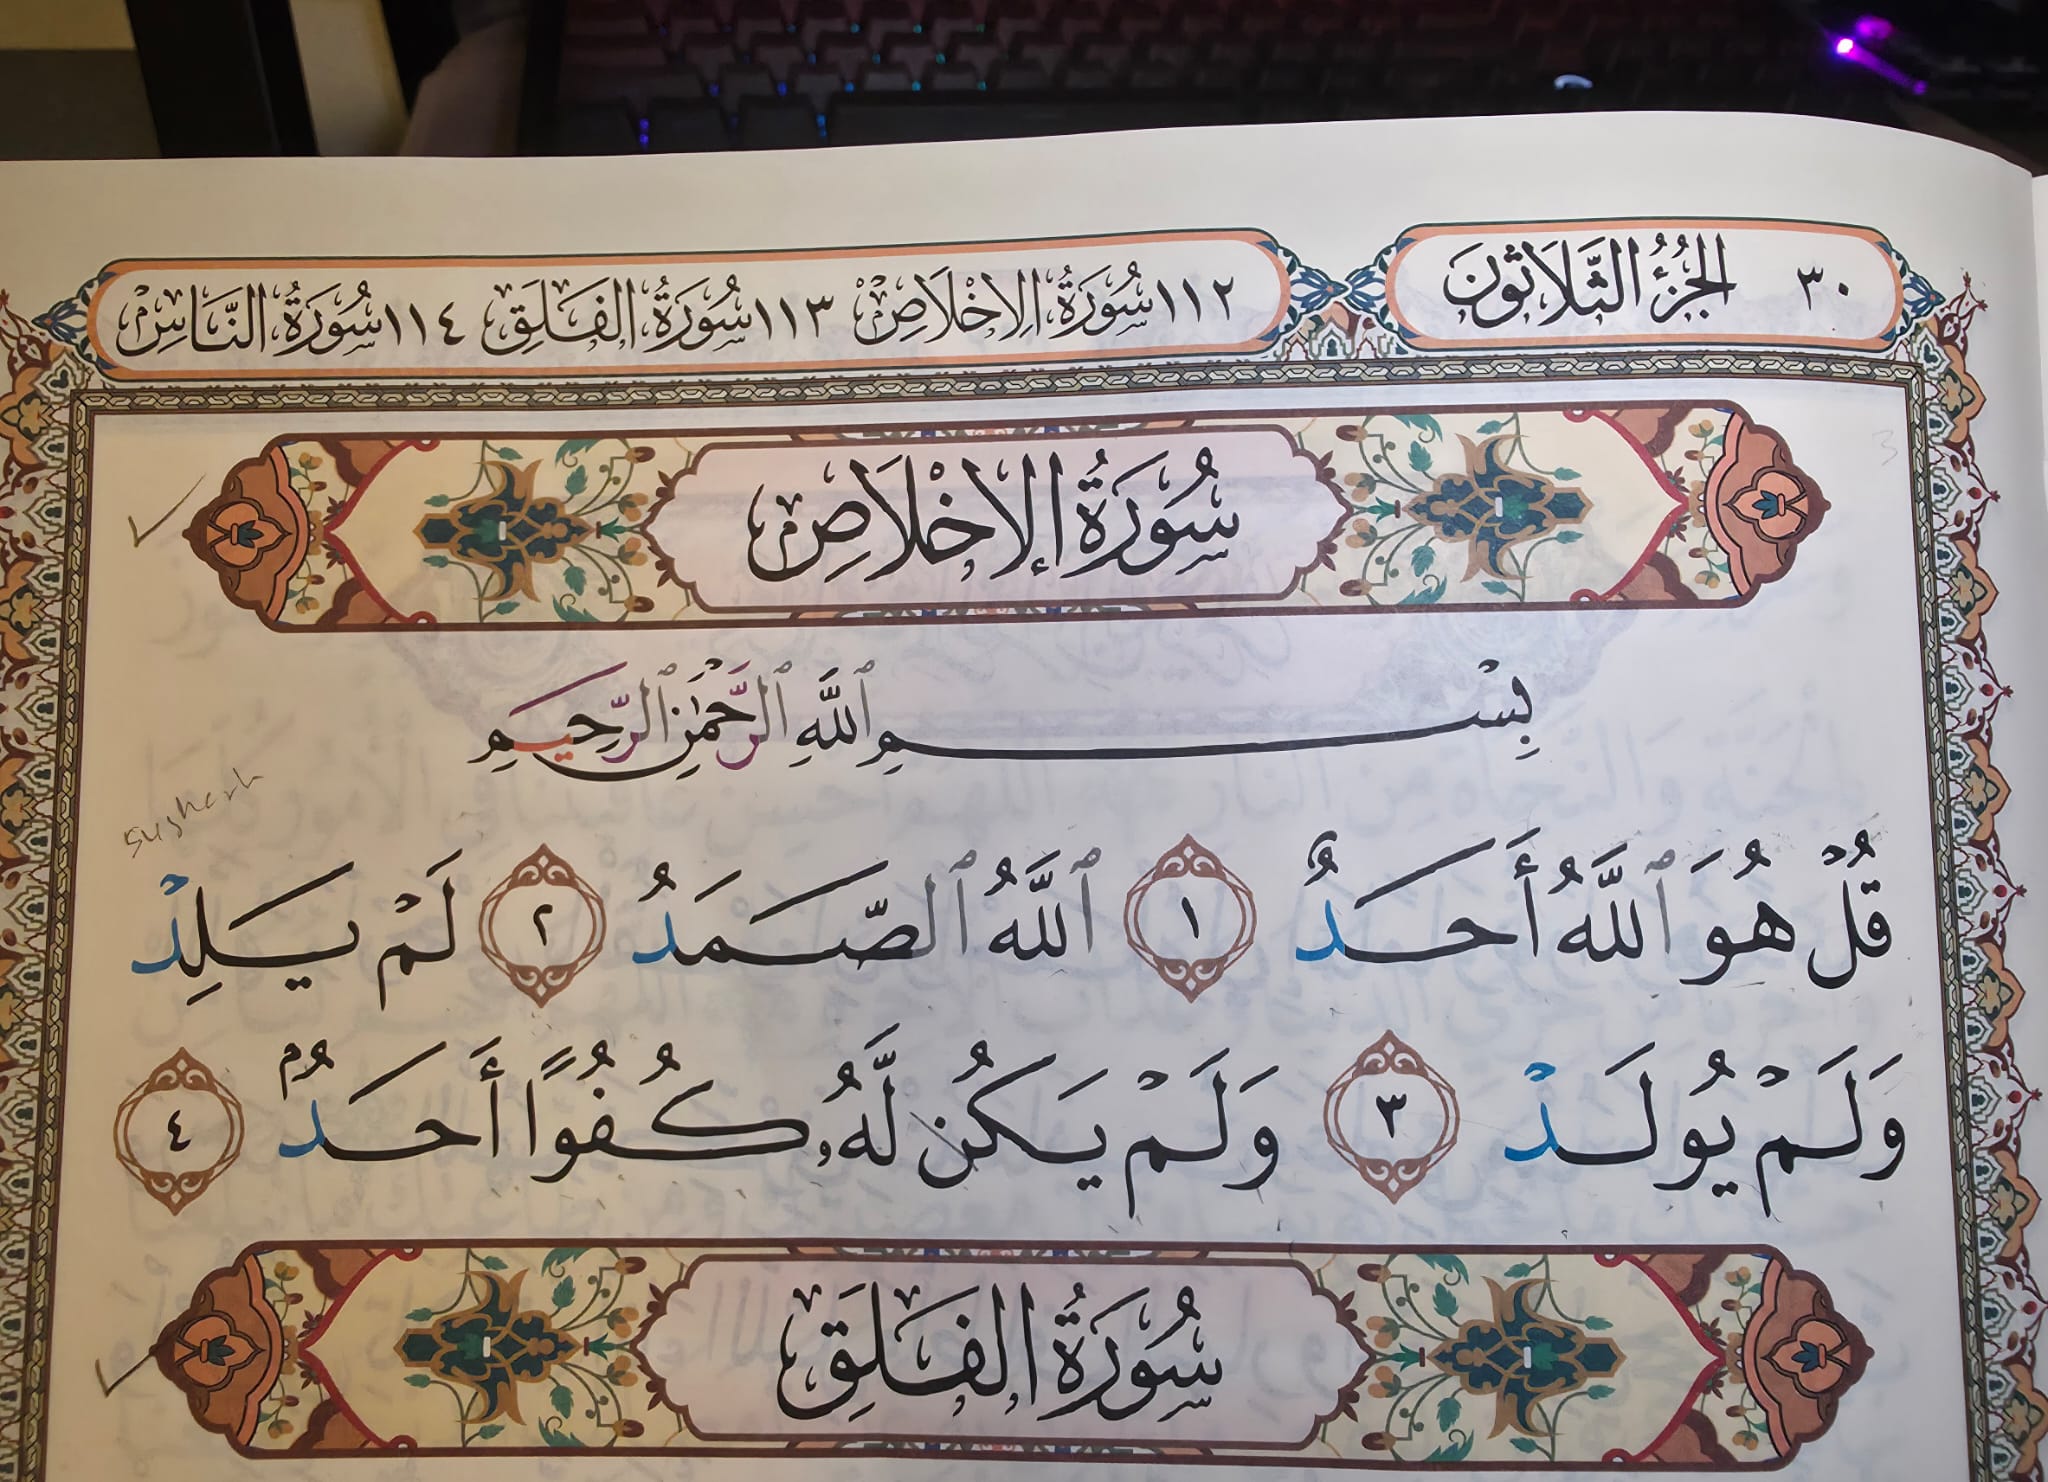 ٣٠ الجُزْءُ الثَّلَاثُونَ
١١٢ سُورَةُ الإِخْلَاصِ ١١٣ سُورَةُ الفَلَقِ ١١٤ سُورَةُ النَّاسِ
3
سُورَةُ الإِخْلَاصِ
بِسْمِ ٱللَّهِ ٱلرَّحْمَٰنِ ٱلرَّحِيمِ
قُلْ هُوَ ٱللَّهُ أَحَدٌ ١ ٱللَّهُ ٱلصَّمَدُ ٢ لَمْ يَلِدْ
وَلَمْ يُولَدْ ٣ وَلَمْ يَكُن لَّهُۥ كُفُوًا أَحَدٌۢ ٤
سُورَةُ الفَلَقِ